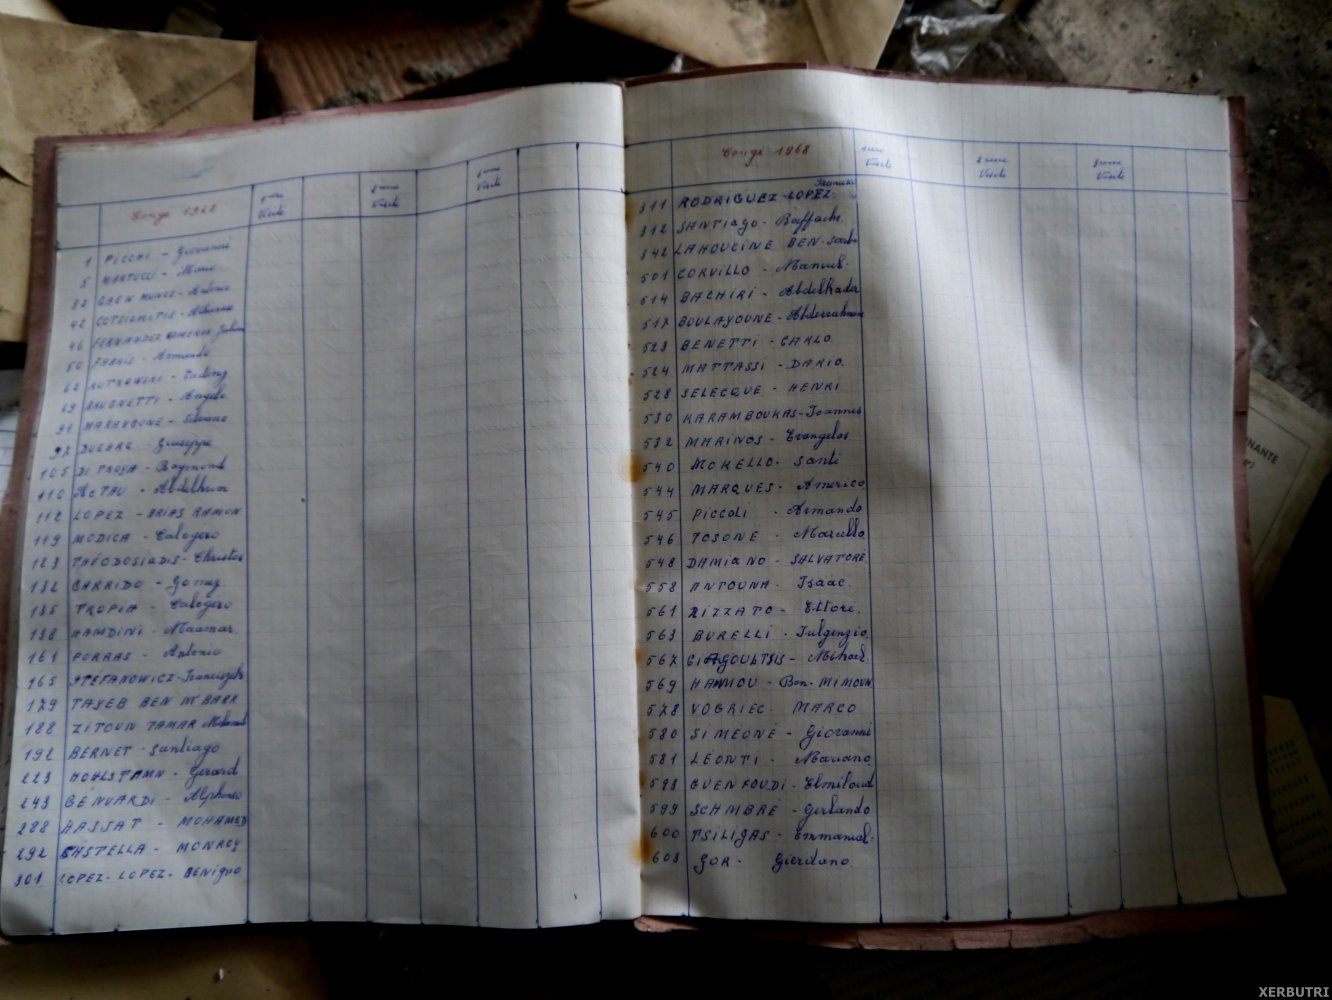 Congé 1968
1ere Visite
2eme Visite
3eme Visite
1 PICCHI - Giovanni
5 MARTUCCI - Mario
22 MUNOZ - Antonio
42 COTSIOMITIS -
46 FERNANDEZ
50 FABRIS - Armando
62
69 BRUGNETTI - Angelo
91 MARAVGONE - Silvano
97 DUGARO - Giuseppe
105 DI TROJA - Raymond
110 ACTAU - Abdelkrim
112 LOPEZ - ARIAS RAMON
119 MODICA - Calogero
123 THÉODOSIADIS - Christos
132 GARRIDO - Gomez
135 TROPIA - Calogero
138 HAMDINI - Maamar
161 PORRAS - Antonio
165 STEFANOWICZ - Franciszek
179 TAYEB BEN M'BARK
188 ZITOUN TAMAR Mohamed
192 BERNET - Santiago
223 HOHLSTAMN - Gerard
243 BÉNVARDI - Alphonso
288 HASSAT - MOHAMED
292 CASTELLA - MONROY
301 LOPEZ - LOPEZ - BENigno
Congé 1968
1ere Visite
2eme Visite
3eme Visite
311 RODRIGUEZ - LOPEZ - Francisco
312 SANTIAGO - Raffaele
342 LAHOUCINE BEN -
501 CORVILLO - Manuel.
514 BACHIRI - Abdelkader
517 BOULAYOUNE - Abderrahman
523 BENETTI - CARLO
524 MATTASSI - DARIO.
528 SELECQUE - HENRI
530 KARAMBOUKAS - Ioannis
532 MARINOS - Evangelos
540 MORELLO - Santi
544 MARQUES - Americo
545 PICCOLI - Armando
546 TOSONE - Marcello
548 DAMIANO - SALVATORE
558 ANTOUNA - Isaac.
561 RIZZATO - Ettore.
563 BURELLI - Fulgenzio
567 GIAGOULTSIS - Michael.
569 HAMMOU - Ben - MIMOUN
578 VOGRIEC - MARCO
580 SIMEONE - Giovanni
581 LEONTI - Mariano
593 GUENFOUDI - Elmiloud
599 SCHMBRÉ - Gerlando
600 TSILIGAS - Emmanuel.
603 GOR - Giordano
NANTE
XERBUTRI